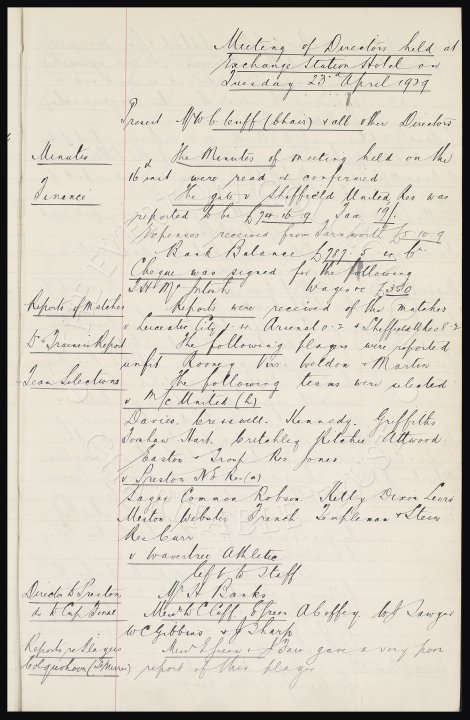 Meeting of Directors held at
Exchange Station Hotel on
Tuesday 23rd April 1929
Present Mr W C Cuff (Chair) & all other Directors
Minutes The Minutes of meeting held on the
16th inst were read & confirmed
Finance The gate v Sheffield United Res was
reported to be £74.16.9 Tax 19/-
Expenses received from Farnworth £5.10.9
Bank Balance £787.5.
Cheque was signed for the following
T.H. McIntosh Wages &c £350
Reports of Matches Reports were received of the matches
v Leicester City Arsenal 0-2 & Sheffield U Res 8-2
Dr & Trainers Report The following players were reported
unfit Rooney Virr Weldon & Martin
Team Selections The following teams were selected
v M/c United (h)
Davies. Cresswell. Kennedy. Griffiths
Hart. Critchley Ritchie Attwood
Easton & Troup Res Jones
v Preston N E Res (a)
Sagar Common Robson Kelly Dixon Lewis
Meston Webster French Templeman & Stein
Res Curr
v Wavertree Athletic
Left to Staff
Director to Preston Mr H Banks
do to Cup Final Messrs W C Cuff E Green A Coffey W J Sawyer
W C Gibbins & J Sharp
Reports re Players Messrs E Green & J Fare gave a very poor
Colquhoun (St Mirren) report of this player